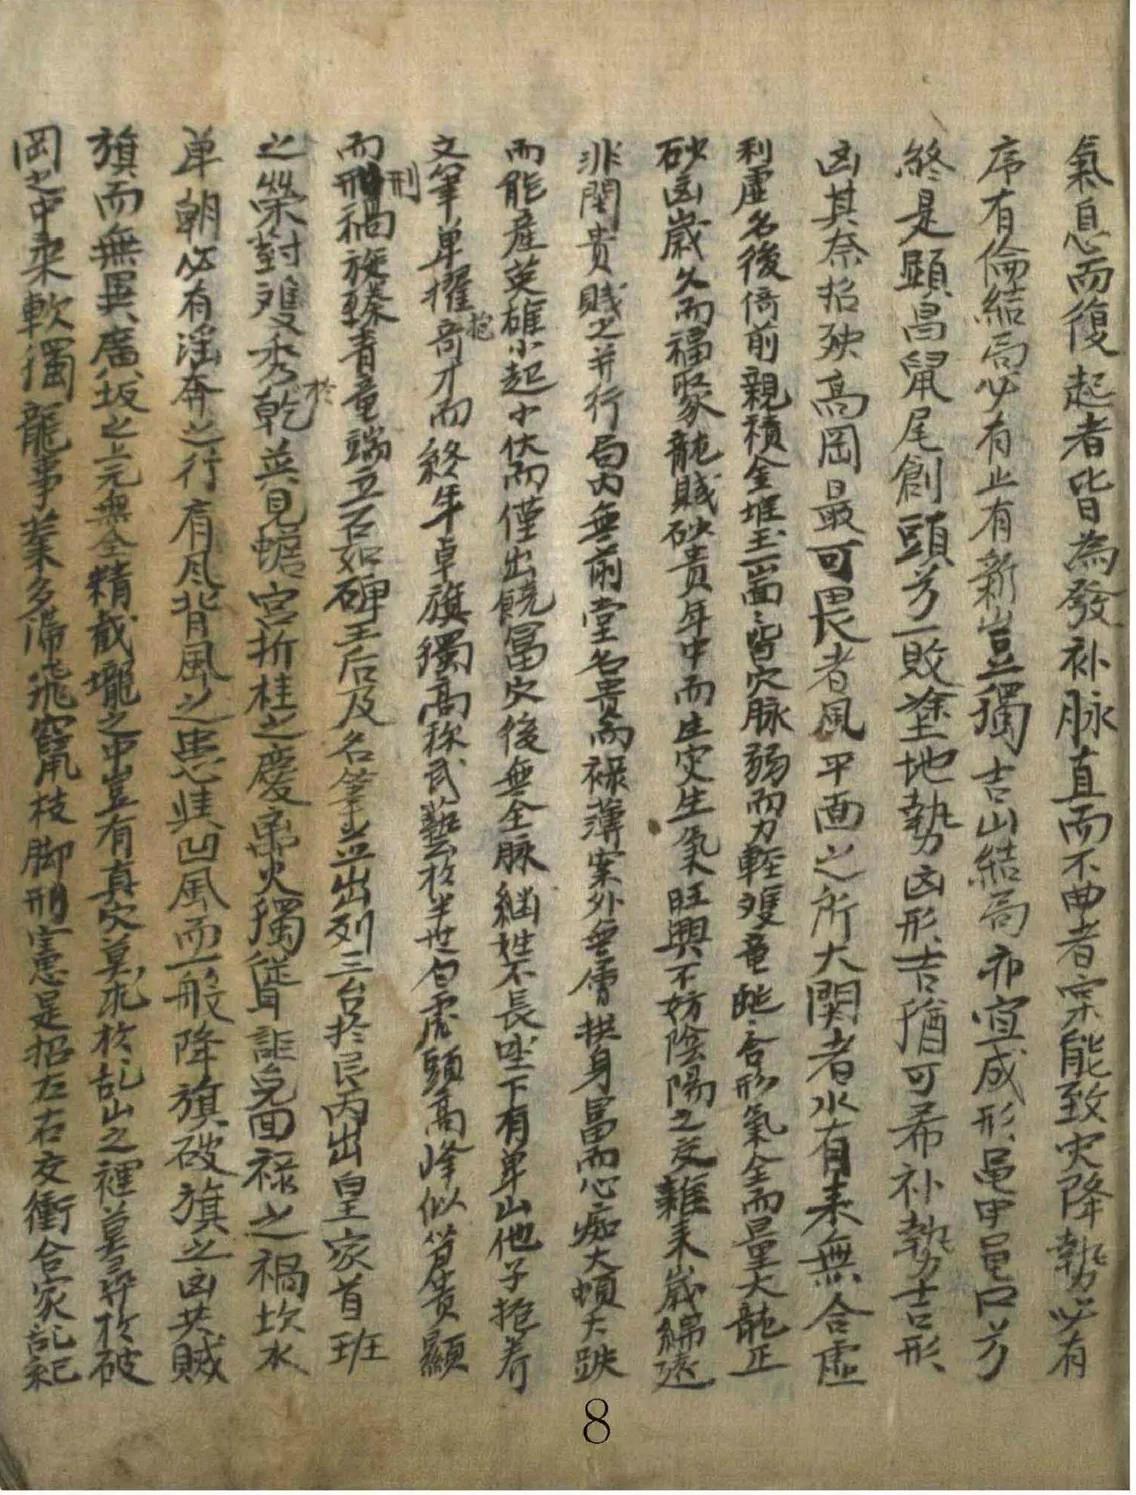 氣息而復起者皆為發补脉直而不曲者宗能致灾降勢必有
序有倫結局必有止有新豈獨吉山結局亦宜成形黽甲黽口芳
終是顯昌鼠尾創頭芳一敗塗地勢凶形吉猶可希补勢吉形
凶其奈招殃高岡最可畏者風平西之所大関者水有来無合虛
利虛名後倚前親積金堆玉啚啚皆穴脉弱而力輕雙竜舭合形氣全而量大龍正
砂凶歲久而福聚龍賊砂貴年中而生灾生氣旺興不妨陰陽之交雜来歲綿遠
非関貴賎之并行局內無前堂名貴而禄薄案外無層拱身富而心痴大頓大跌
而能産英雄小起小伏而僅出饒冨穴後無全脉継姓不長唑下有单山他子抱养
文筆单擢奇才而終年卓旗獨高称武藝於半世白虎頭高峰似笏貴顯
抱
而刑禍旋臻青竜端立石如碑王后及名筆並出列三台於艮丙出皇家首班
刑
之榮對雙秀乾並見蟾宮折桂之慶鬲火獨聳誰免面禄之禍坎水
於
单朝必有淫奔之行有凨背風之患與凹風而一般降旗破旗之凶共賊
旗而無異廣坂之上元無全精截壠之中豈有真穴莫求於乱山之裡莫尋於破
岡之中柔軟獨龍事業多滯飛竄枝脚刑害是招左右交衝合家乱紀
8